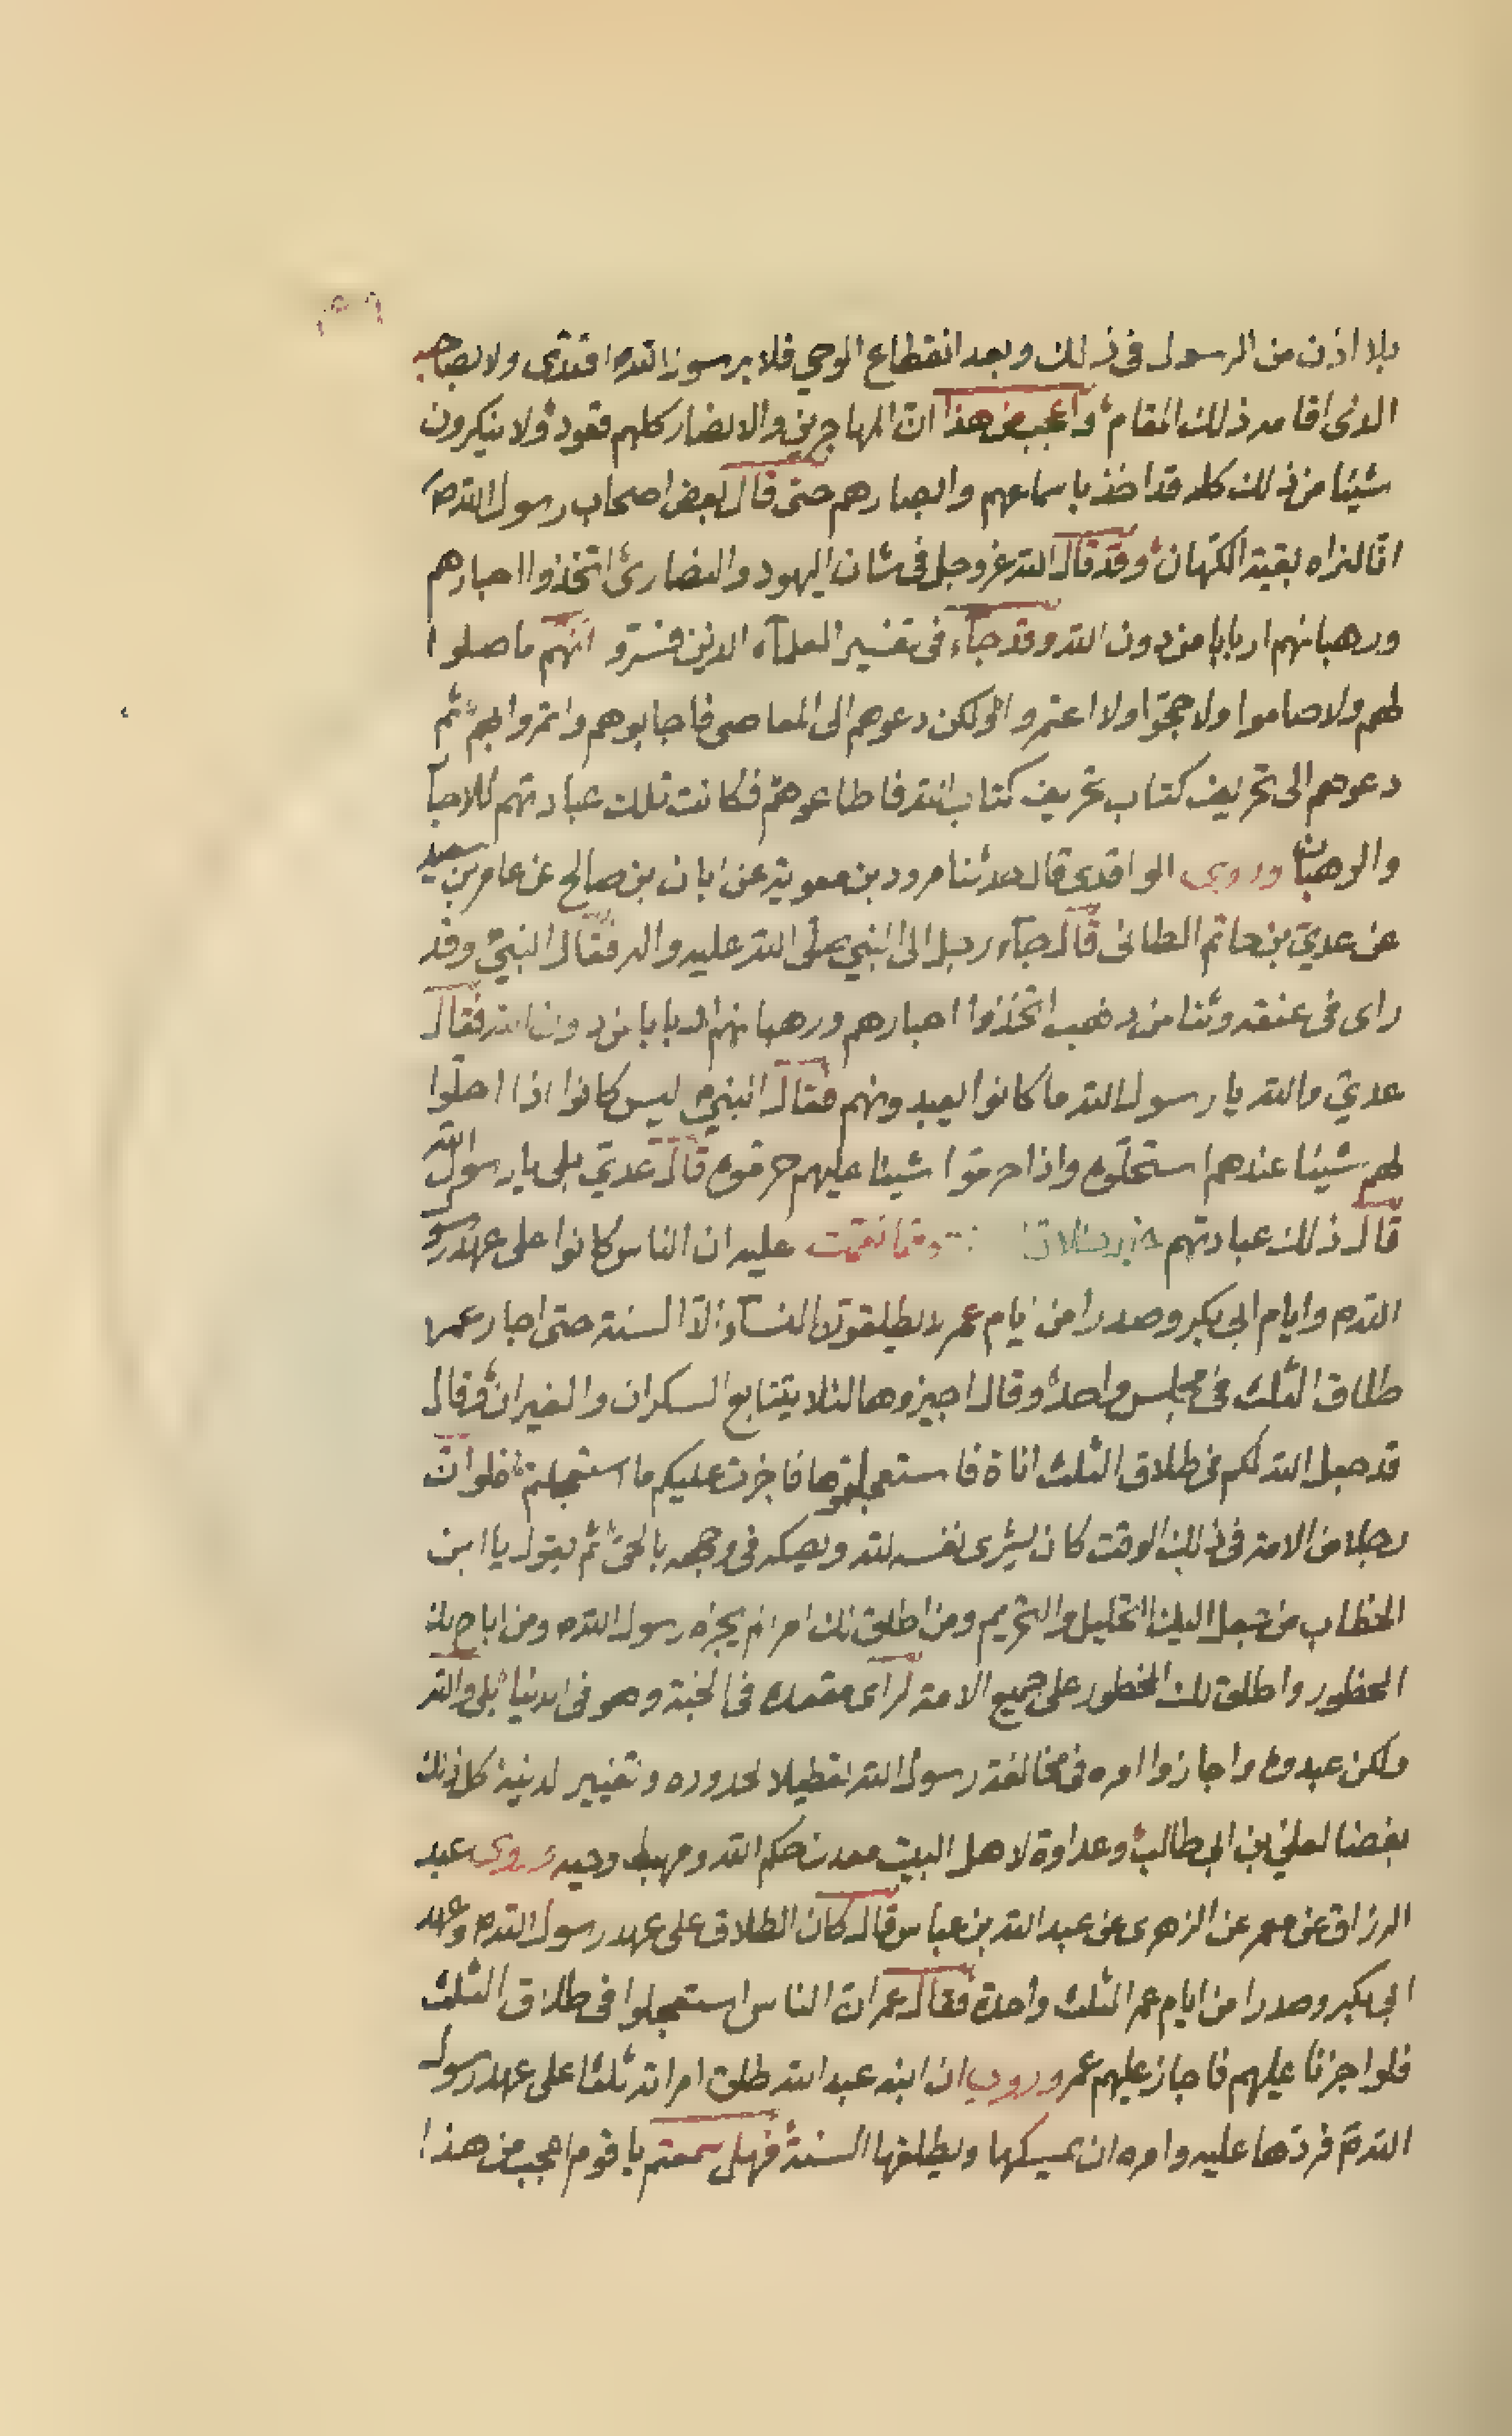 بلا اذن من الرسول فى ذلك وبعد انقطاع الوحي فلا برسول الله اقتدى ولا بصاحبه
الذى اقامه ذلك المقام واعجب من هذا ان المهاجرين والانصار كلهم قعود ولا ينكرون
شيئا من ذلك كله قد اخذ باسماعهم وابصارهم حتى قال بعض اصحاب رسول الله ص
انا لنراه بقية الكهان وقد قال الله عز وجل فى شان اليهود والنصارى اتخذوا احبارهم
ورهبانهم اربابا من دون الله وقد جآء فى تفسير العلمآء الذين فسرو انهم ما صلوا
لهم ولا صاموا ولا حجوا ولا اعتمروا ولكن دعوهم الى المعاصى فاجابوهم وائتمروا بهم ثم
دعوهم الى تحريف كتاب تحريف كتاب الله فاطاعوهم فكانت تلك عبادتهم للاحبا
والرهبان وروى الواقدى قال حدثنا مرود بن معوية عن ابان بن صالح عن عامر بن سعيد
عن عدي بن حاتم الطائى قال جآء رجل الى النبي صلى الله عليه واله فقال النبي وقد
راى فى عنقه وثنا من ذهب اتخذوا احبارهم ورهبانهم اربابا من دون الله فقال
عدي والله يا رسول الله ما كانوا يعبدونهم فقال النبي ص ليس كانوا اذا احلوا
لهم شيئا عندهم استحلوه واذا حرموا شيئا عليهم حرموه قال عدي بلى يا رسول الله
قال ذلك عبادتهم ومما نقمت عليه ان الناس كانوا على عهد رسول
الله ص وايام ابى بكر وصدرا من ايام عمر لا يطلقون النسآء الا السنة حتى اجاز عمر
طلاق الثلث فى مجلس واحد وقال اجيزوها لئلا يتتابع السكران والغيران وقال
قد جعل الله لكم فى طلاق الثلث اناة فاستعجلتموها فاجزت عليكم ما استعجلتم فلو ان
رجلا من الامة فى ذلك الوقت كان يشرى نفسه لله ويصكه فى وجهه بالحق ثم يقول يا ابن
الخطاب من جعل اليك التحليل والتحريم ومن اطلق لك امرا لم يجزه رسول الله ص ومن اباح لك
المحظور واطلق لك المحظور على جميع الامة لراى مقعده فى الجنة وهو فى الدنيا بلى والله
ولكن عبدوه واجازوا امره فى مخالفة رسول الله تعطيلا لحدوده وتغيير لدينه كل ذلك
بغضا لعلي بن ابى طالب وعداوة لاهل البيت معدن حكم الله ومهبط وحيه وروى عبد
الرزاق عن معمر عن الزهرى عن عبد الله بن عباس قال كان الطلاق على عهد رسول الله ص وعهد
ابى بكر وصدرا من ايام عمر الثلث واحدة فقال عمر ان الناس استعجلوا فى طلاق الثلث
فلو اجزنا عليهم فاجاز عليهم عمر وروى ان ابنه عبد الله طلق امراته ثلثا على عهد رسول
الله ص فردها عليه وامره ان يمسكها ويطلقها السنة فهل سمعتم يا قوم اعجب من هذا